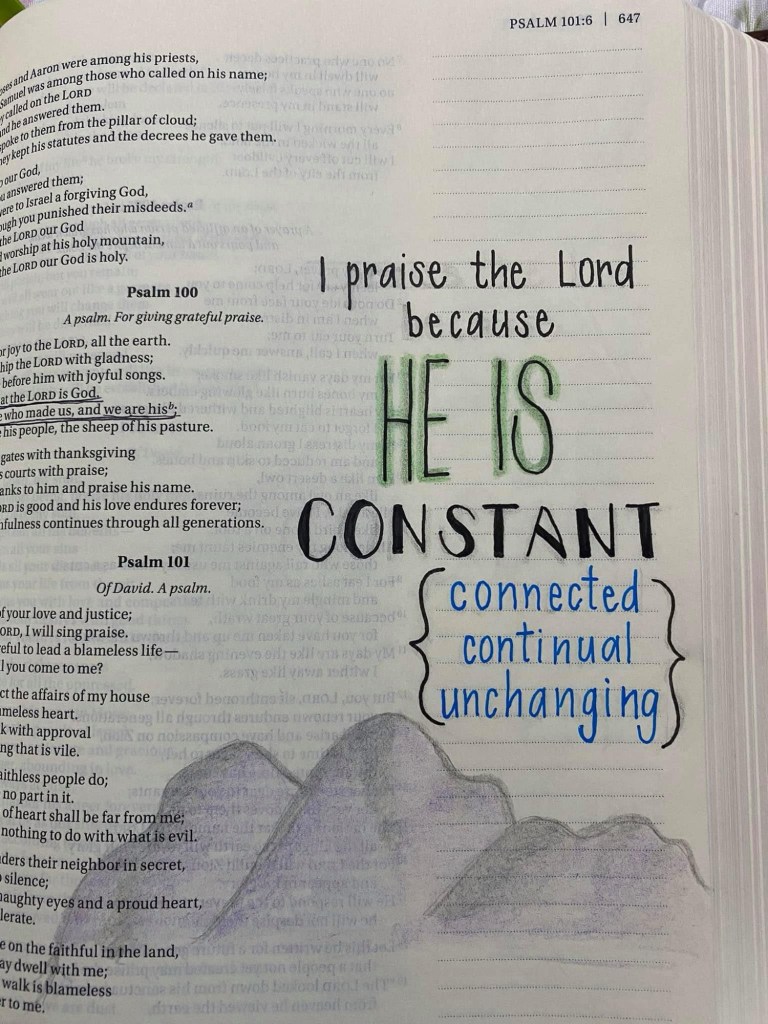 PSALM 101:6 | 647
and Aaron were among his priests,
Samuel was among those who called on his name;
called on the LORD
and he answered them.
spoke to them from the pillar of cloud;
they kept his statutes and the decrees he gave them.
our God,
answered them;
were to Israel a forgiving God,
though you punished their misdeeds.a
the LORD our God
worship at his holy mountain,
the LORD our God is holy.
Psalm 100
A psalm. For giving grateful praise.
for joy to the LORD, all the earth.
with gladness;
before him with joyful songs.
that the LORD is God.
who made us, and we are hisb;
his people, the sheep of his pasture.
gates with thanksgiving
courts with praise;
thanks to him and praise his name.
LORD is good and his love endures forever;
faithfulness continues through all generations.
Psalm 101
Of David. A psalm.
of your love and justice;
LORD, I will sing praise.
to lead a blameless life—
you come to me?
the affairs of my house
blameless heart.
with approval
that is vile.
faithless people do;
no part in it.
of heart shall be far from me;
nothing to do with what is evil.
their neighbor in secret,
silence;
haughty eyes and a proud heart,
on the faithful in the land,
may dwell with me;
walk is blameless
to me.
I praise the Lord
because
HE IS
CONSTANT
connected
continual
unchanging